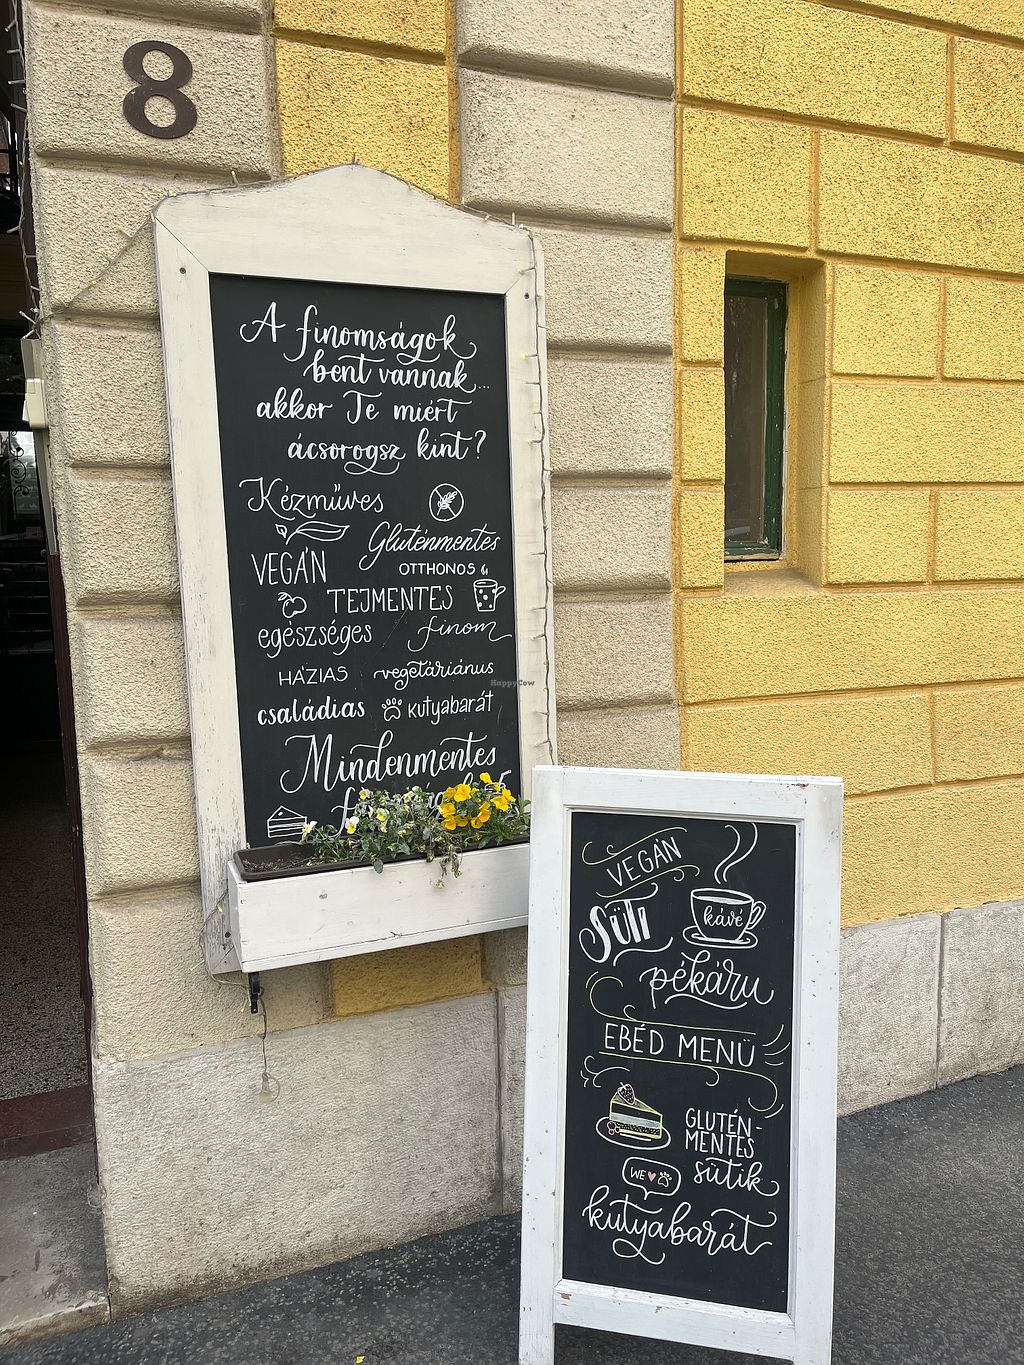 8
A finomságok
bent vannak...
akkor Te miért
ácsorogsz kint?
Kézműves
Gluténmentes
VEGÁN
OTTHONOS
TEJMENTES
egészséges
finom
HÁZIAS
vegetáriánus
HappyCow
családias
kutyabarát
Mindenmentes
VEGÁN
SÜTI
kávé
pékáru
EBÉD MENÜ
GLUTÉN-
MENTES
sütik
WE
kutyabarát